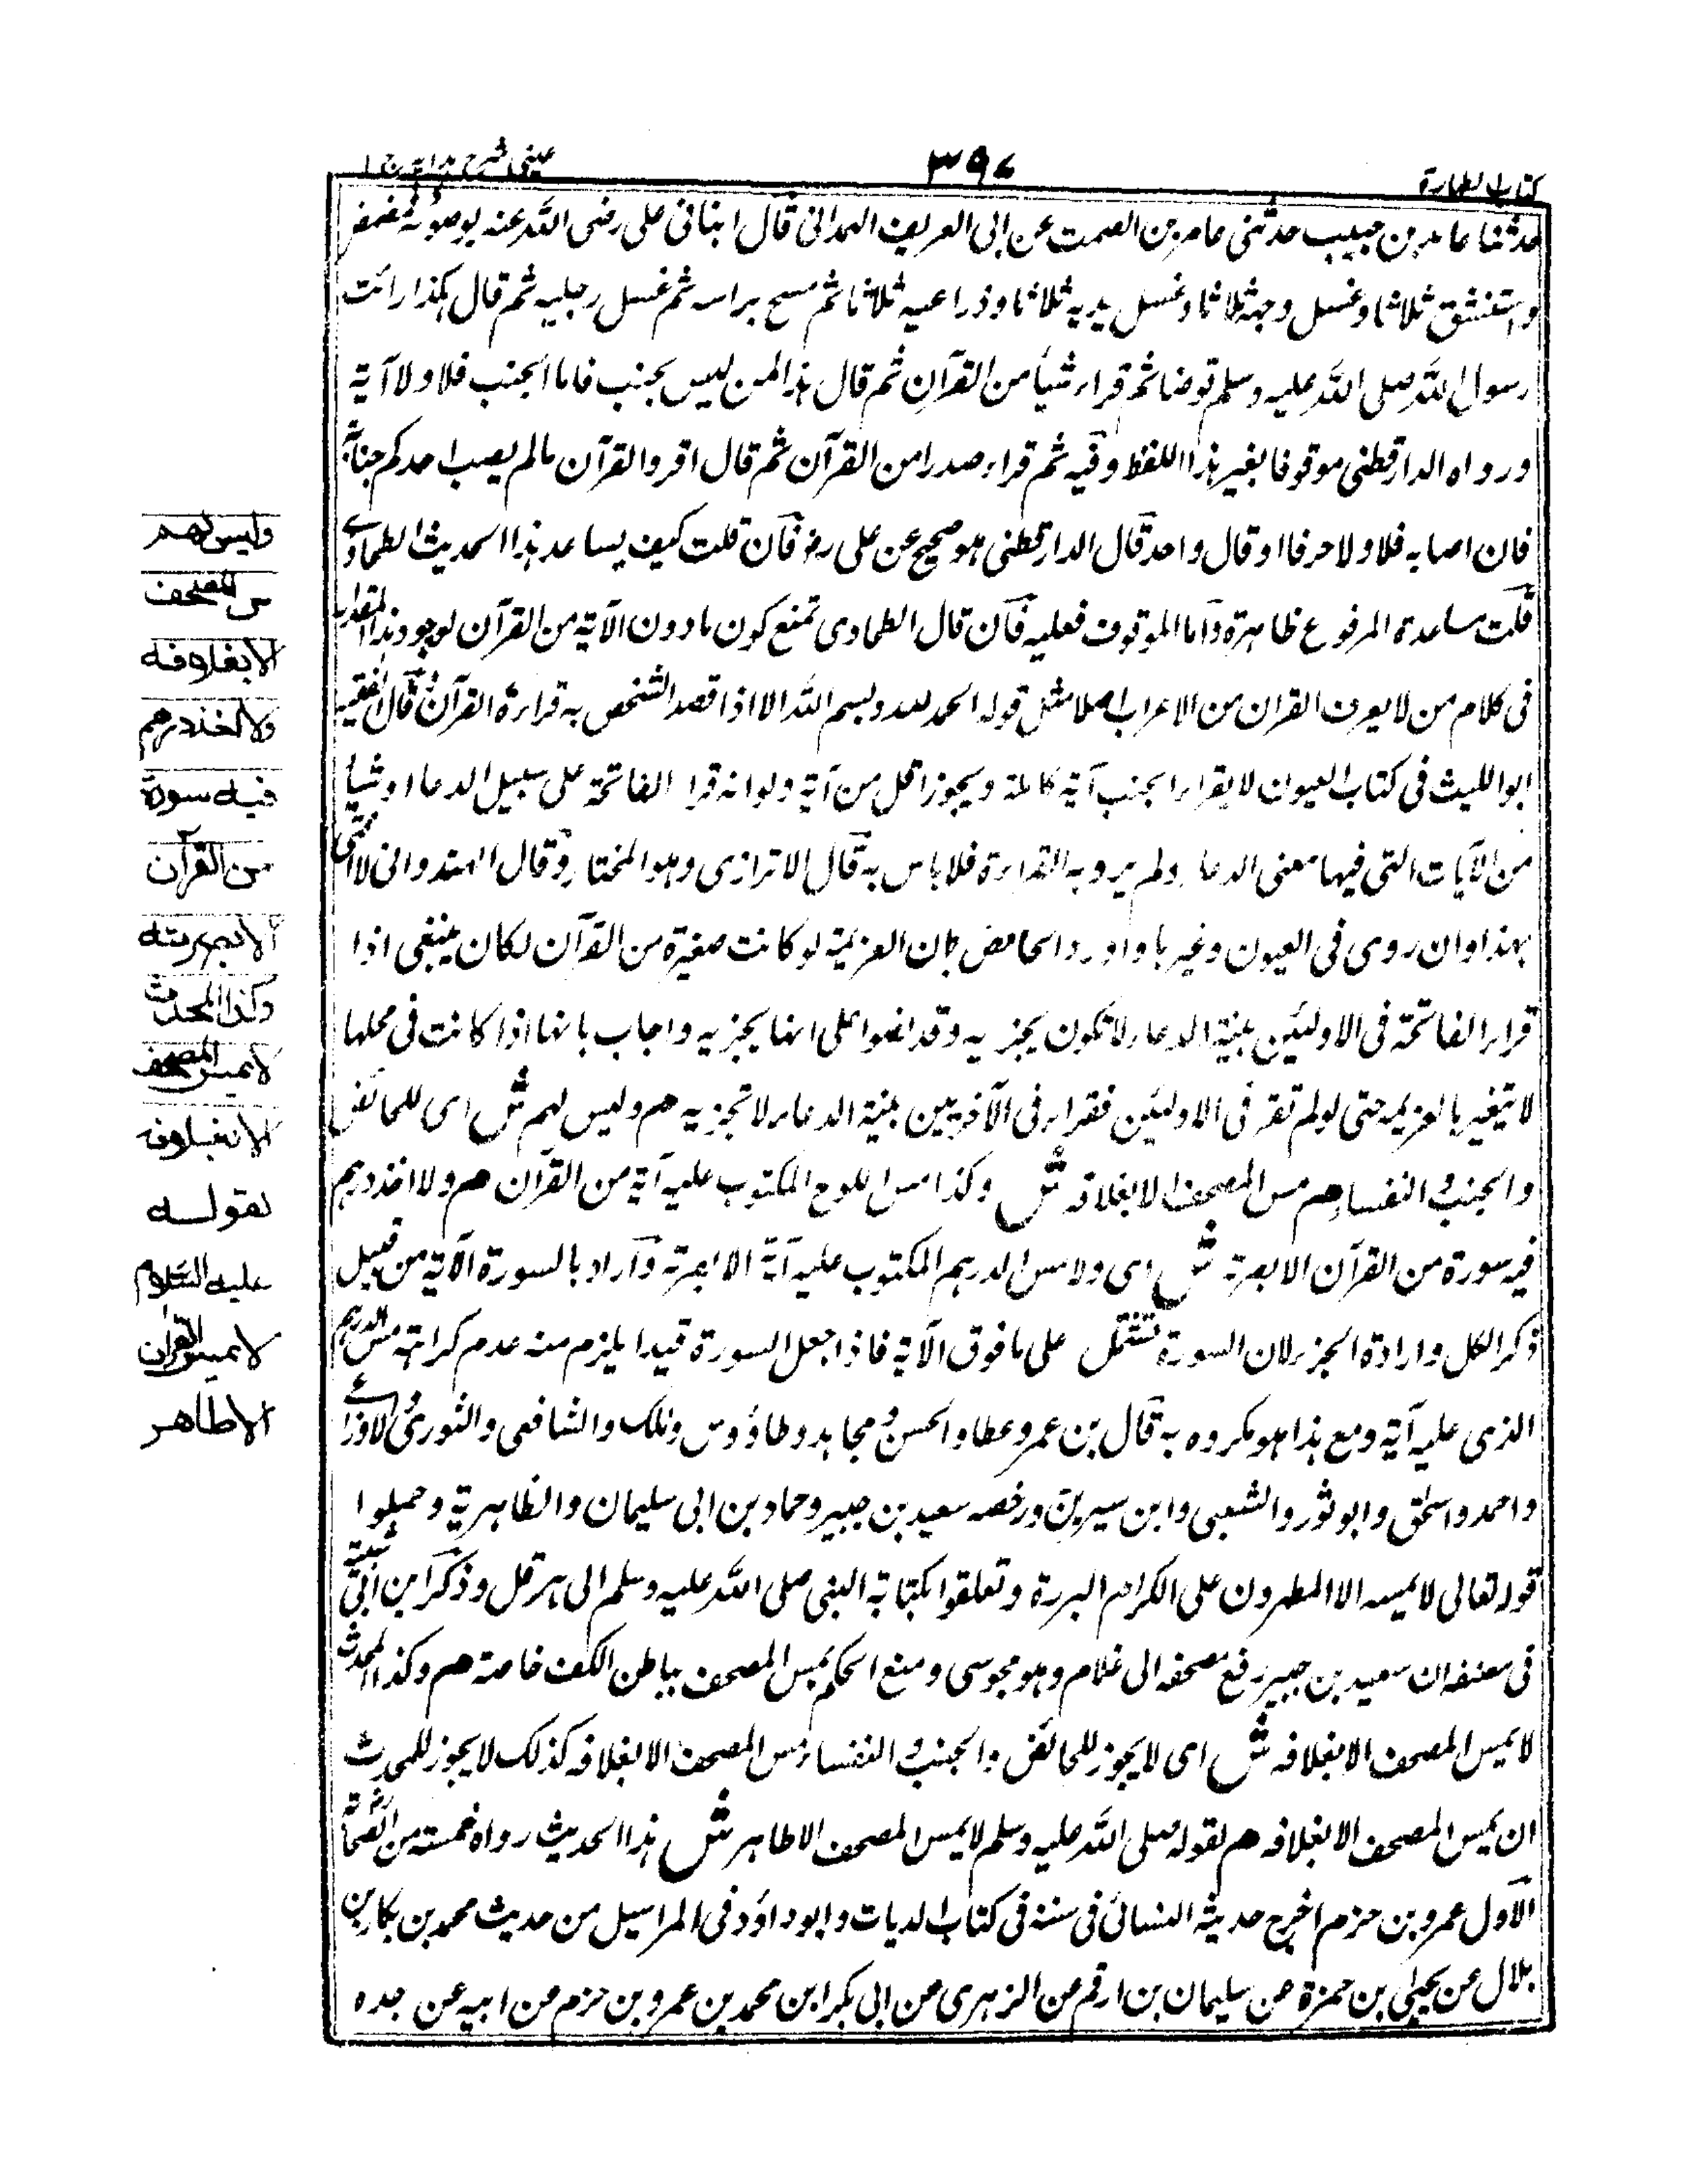 كتاب الطهارة
٣٩٧
عينى شرح هداية ج ١
حدثنا عايد بن حبيب حدثنى عامر بن الصمت عن ابى العريف الهمدانى قال ابنانى على رضى الله عنه بوضوئه فمضمض
واستنشق ثلاثا وغسل وجهه ثلاثا وغسل يديه ثلاثا وذراعيه ثلاثا ثم مسح براسه ثم غسل رجليه ثم قال هكذا رائت
رسول الله صلى الله عليه وسلم توضا ثم قراء شيأ من القرآن ثم قال هذا لمن ليس بجنب فاما الجنب فلا ولا آية
ورواه الدارقطنى موقوفا بغير هذا اللفظ وفيه ثم قراء صدرا من القرآن ثم قال اقروا القرآن مالم يصب احدكم جنابة
فان اصابه فلا ولا حرفا او قال واحد قال الدارقطنى هو صحيح عن على رض فان قلت كيف يساعد هذا الحديث الطحاوى
قلت مساعدة المرفوع ظاهرة واما الموقوف فعليه فان قال الطحاوى تمنع كون مادون الآية من القرآن لوجود هذا المقدار
فى كلام من لا يعرف القران من الاعراب اصلا مثل قوله الحمد لله وبسم الله الا اذا قصد الشخص به قراءة القرآن قال الفقيه
ابو الليث فى كتاب العيون لا يقراء الجنب آية كاملة ويجوز اقل من آية ولو انه قرا الفاتحة على سبيل الدعا او شيأ
من الآيات التى فيها معنى الدعاء ولم يرد به القراءة فلا باس به قال الاترازى وهو المختار وقال الهندوانى لا افتى
بهذا وان روى فى العيون وغيرها واورد الحامض بان العزيمة لو كانت مغيرة من القرآن لكان ينبغى اذا
قراء الفاتحة فى الاوليين بنية الدعاء لا تكون يجزيه وقد نصوا على انها يجزيه واجاب بانها اذا كانت فى محلها
لا يتغير بالعزيمه حتى لو لم تقر فى الاوليين فقراء فى الآخريين بنية الدعاء لا تجزيه صم وليس لهم ش اى للحائض
والجنب و النفساء صم مس المصحف الا بغلافه ش وكذا مس اللوح المكتوب عليه آية من القرآن صم ولا اخذ درهم
فيه سورة من القرآن الا بصرته ش اى ولا مس الدرهم المكتوب عليه آية الا بصرته وآراد بالسورة الآية من قبيل
ذكر الكل وارادة الجزء لان السورة تشتمل على ما فوق الآية فاذا جعل السورة قيدا يلزم منه عدم كراهة مس الدرهم
الذى عليه آية ومع هذا هو مكروه به قال بن عمر وعطا والحسن و مجاهد وطاؤوس ومالك والشافعى والثورى و الاوزاعى
واحمد واسحق وابو ثور والشعبى وابن سيرين ورخصه سعيد بن جبير وحماد بن ابى سليمان والظاهرية وحملوا
قوله تعالى لا يمسه الا المطهرون على الكرام البررة وتعلقوا بكتابة النبى صلى الله عليه وسلم الى هرقل وذكر ابن ابى شيبة
فى مصنفه ان سعيد بن جبير رفع مصحفه الى غلام وهو مجوسى ومنع الحكم بمس المصحف بباطن الكف خاصة صم وكذا المحدث
لا يمس المصحف الا بغلافه ش اى لا يجوز للحائض والجنب و النفساء مس المصحف الا بغلافه كذلك لا يجوز للمحدث
ان يمس المصحف الا بغلافه صم لقوله صلى الله عليه وسلم لا يمس المصحف الا طاهر ش هذا الحديث رواه خمسة من الصحابة رض
الآول عمرو بن حزم اخرج حديثه النسائى فى سننه فى كتاب الديات وابو داؤد فى المراسيل من حديث محمد بن بكار بن
بلال عن يحيى بن حمزة عن سليمان بن ارقم عن الزهرى عن ابى بكر ابن محمد بن عمرو بن حزم عن ابيه عن جده
وليس لهم
مس المصحف
الا بغلافه
ولا اخذ درهم
فيه سورة
من القرآن
الا بصرته
وكذا المحدث
لا يمس المصحف
الا بغلافه
لقوله
عليه السلام
لا يمس القرآن
الا طاهر